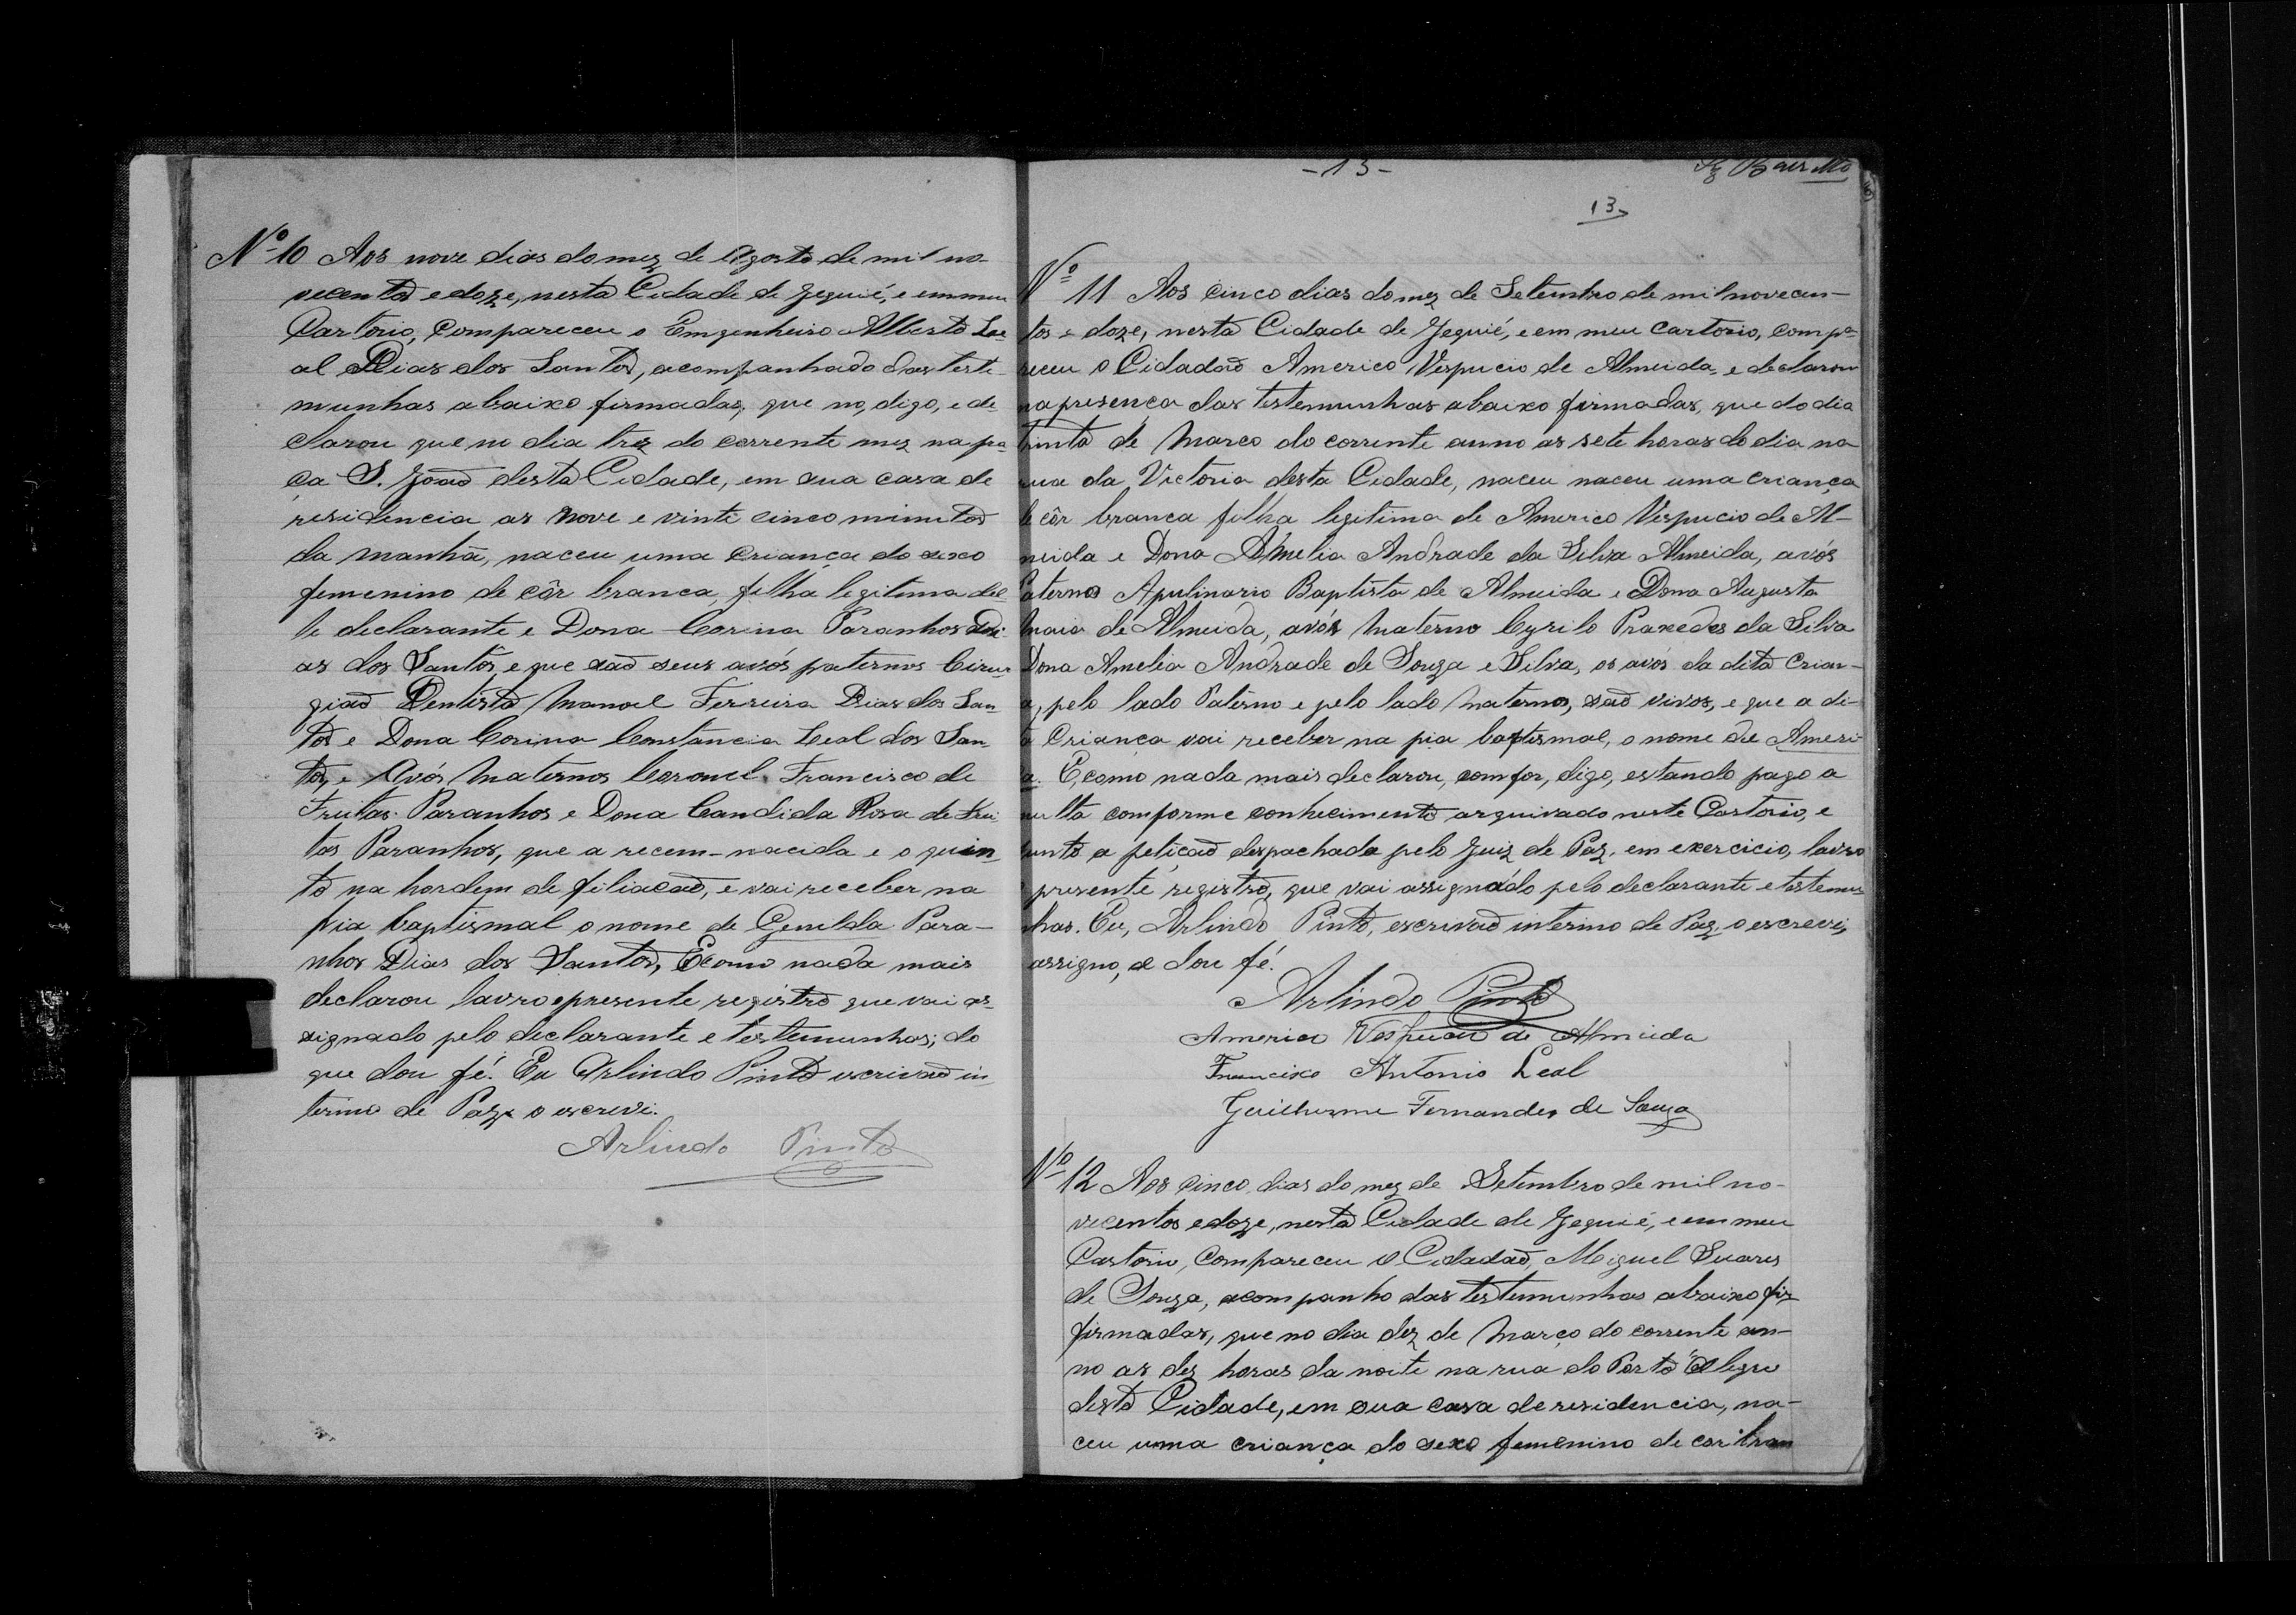 Nº 10 Aos nove dias do mez de Agosto de mil no-
vecentos e doze, nesta Cidade de Jequié, e em meu
Cartorio, Compareceu o Emgenheiro Alberto Le-
al Dias dos Santos, acompanhado das teste-
munhas abaixo firmadas, que no, digo, e de-
clarou que no dia trez do corrente mez na pa-
ça S. João desta Cidade, em sua casa de
residencia as nove e vinte cinco minutos
da manhã, naceu uma criança do sexo
femenino de côr branca, filha legitima del-
le declarante e Dona Corina Paranhos Di-
as dos Santos, e que são seus avós paternos Cirur
gião Dentista Manoel Ferreira Dias dos San-
tos e Dona Corina Constancia Leal dos San-
tos, e Avós Maternos Coronel Francisco de
Freitas Paranhos e Dona Candida Rosa de Frei-
tas Paranhos, que a recem-nacida e o quin-
to na hordem de filiacão, e vai receber na
pia baptismal o nome de Genilda Para-
nhos Dias dos Santos, E como nada mais
declarou lavro o presente registro que vai as-
signado pelo declarante e testemunhas; do
que dou fé. Eu Arlindo Pinto escrivão in-
terino de Paz o escrevi.
Arlindo Pinto
-13-
13
Nº 11 Aos cinco dias do mez de Setembro de mil novecen-
tos e doze, nesta Cidade de Jequié, e em meu cartorio, compa-
receu o Cidadão Americo Vespucio de Almeida, e declarou
na presenca das testemunhas abaixo firmadas, que do dia
trinta de Marco do corrente anno as sete horas do dia na
rua da Victoria desta Cidade, naceu naceu uma criança
de côr branca filha legitima de Americo Vespucio de Al-
meida e Dona Amelia Andrade da Silva Almeida, avós
Paternos Apulinario Baptista de Almeida e Dona Augusta
Maia de Almeida, avós Materno Cyrilo Praxedes da Silva
Dona Amelia Andrade de Souza e Silva, os avós da dita Crian-
a, pelo lado Paterno e pelo lado Materno, são vivos, e que a di-
ta Crianca vai receber na pia baptismal, o nome de Ameri-
ca. E, como nada mais declarou, comfor, digo, estando pago a
multa comforme conhecimento arquivado neste Cartorio, e
junto a peticão despachada pelo Juiz de Paz, em exercicio, lavro
presente registro, que vai assignado pelo declarante e testemu-
nhas. Eu, Arlindo Pinto, escrivão interino de Paz, o escrevi,
assigno, e dou fé.
Arlindo Pinto
Americo Vespucio de Almeida
Francisco Antonio Leal
Guilherme Fernandes de Souza
Nº 12 Aos cinco dias do mez de Setembro de mil no-
vecentos e doze, nesta Cidade de Jequié, e em meu
Cartorio, Compareceu o Cidadão, Miguel Suares
de Souza, acompanho das testemunhas abaixo fir-
firmadas, que no dia dez de Março do corrente an-
no as dez horas da noite na rua do Porto Alegre
desta Cidade, em sua casa de residencia, na-
ceu uma criança do sexo femenino de cor bran